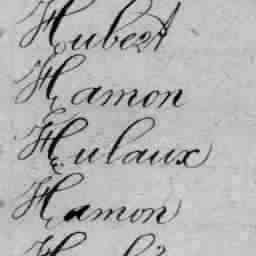 Hubert
Hamon
Hulaux
Hamon